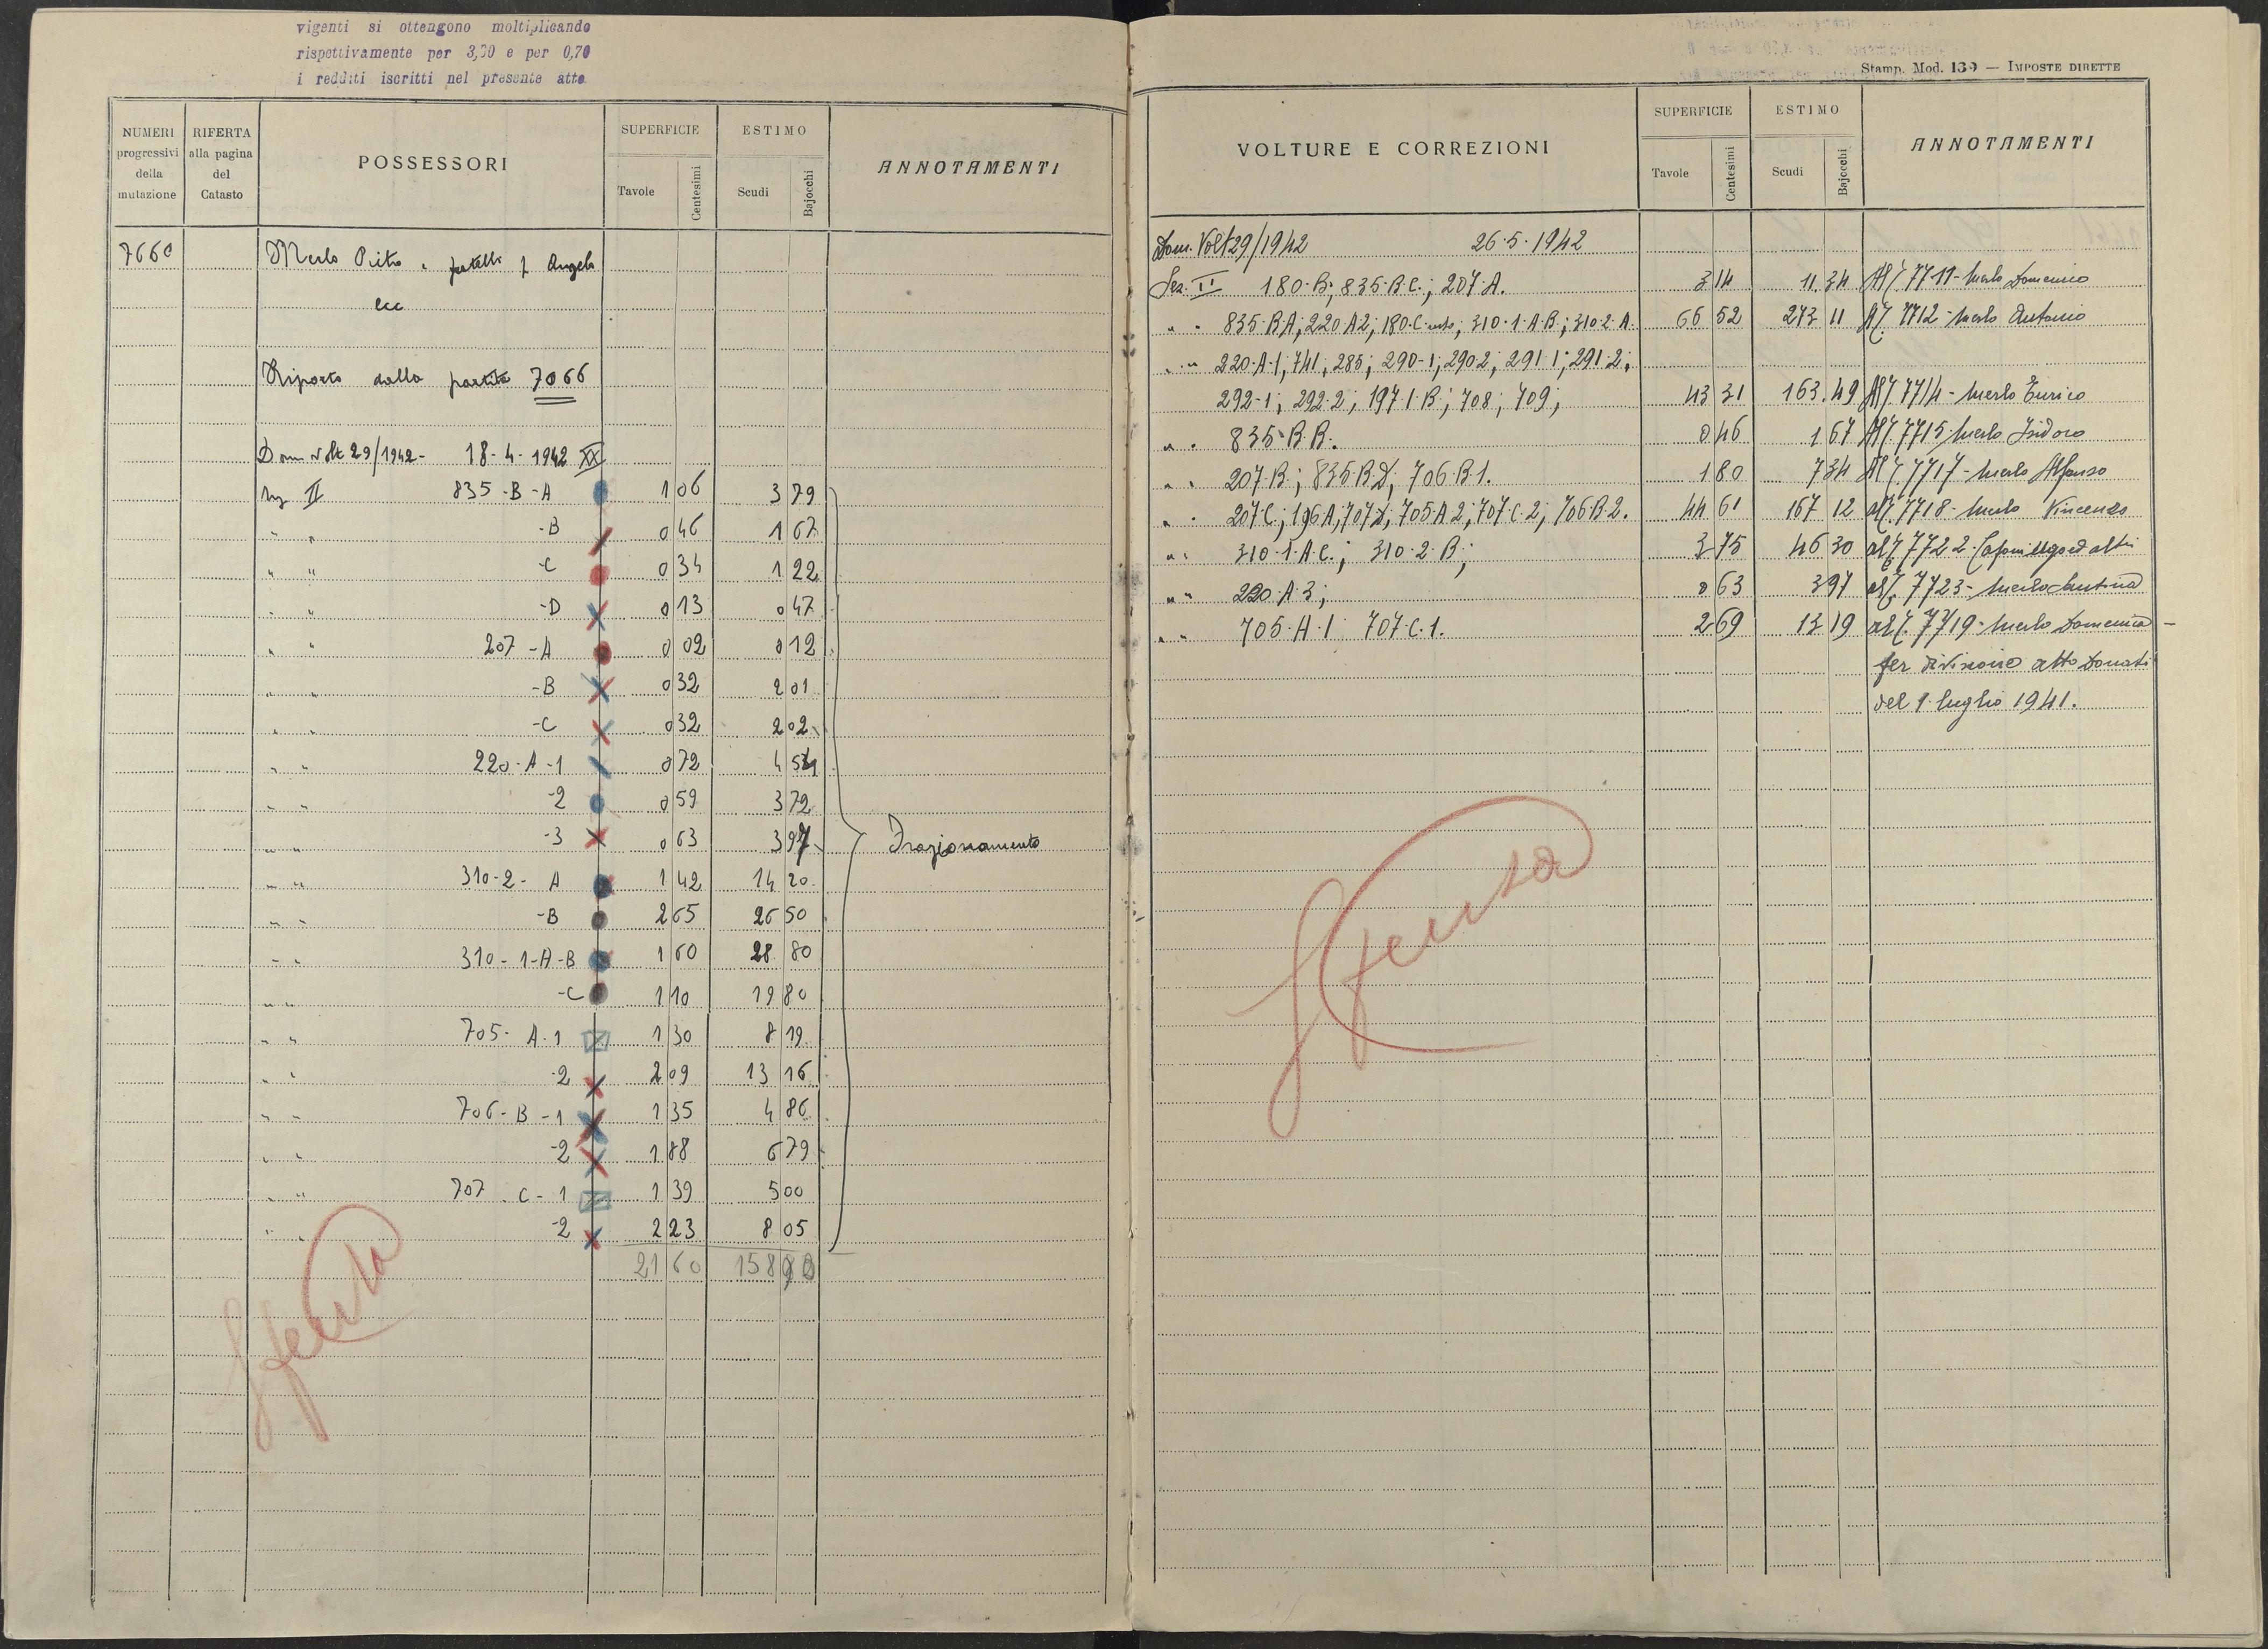 vigenti si ottengono moltiplicando
rispettivamente per 3,30 e per 0,70
i redditi iscritti nel presente atto
NUMERI progressivi della mutazione
RIFERTA alla pagina del Catasto
POSSESSORI
SUPERFICIE
Tavole Centesimi
ESTIMO
Scudi Bajocchi
ANNOTAMENTI
7660 Merlo Pietro e fratelli f Angelo
ecc
Riporto dalla partita 7066
Dom Volt 29/1942 - 18-4-1942 XX
Sez II 835-B-A 1 06 3 79
" " -B 0 46 1 67
" " -C 0 34 1 22
" " -D 0 13 0 47
" " 207-A 0 02 0 12
" " -B 0 32 2 01
" " -C 0 32 2 02
" " 220-A-1 0 72 4 54
" " -2 0 59 3 72
" " -3 0 63 3 97
Frazionamento
" " 310-2-A 1 42 14 20
" " -B 2 65 26 50
" " 310-1-A-B 1 60 28 80
" " -C 1 10 19 80
" " 705-A-1 1 30 8 19
" " -2 2 09 13 16
" " 706-B-1 1 35 4 86
" " -2 1 88 6 79
" " 707-C-1 1 39 5 00
" " -2 2 23 8 05
21 60 158
Stamp. Mod. 139 — IMPOSTE DIRETTE
VOLTURE E CORREZIONI
SUPERFICIE
Tavole Centesimi
ESTIMO
Scudi Bajocchi
ANNOTAMENTI
Dom. Volt 29/1942 26-5-1942
Sez. II 180-B; 835-B-C.; 207-A. 3 14 11 34 All 7711 - Merlo Domenico
" " 835-B-A, 220 A2; 180-C; 310-1-A-B; 310-2-A. 66 52 273 11 All 7712 - Merlo Antonio
" " 220-A-1, 741, 285; 290-1; 290-2; 291-1; 291-2;
292-1; 292-2; 197-1-B; 708; 709; 43 31 163 49 All 7714 - Merlo Enrico
" " 835-B-B. 0 46 1 67 All 7715 Merlo Isidoro
" " 207-B; 835-B-D; 706-B-1. 1 80 7 34 All 7717 - Merlo Alfonso
" " 207-C; 196-A, 707-D, 705-A 2; 707-C-2; 706-B-2. 44 61 167 12 all 7718 - Merlo Vincenzo
" " 310-1-A-C.; 310-2-B; 3 75 46 30 all 7722 - ed altri
" " 220-A-3; 0 63 3 97 all 7723 - Merlo
" " 705-A-1 707-C-1. 2 69 13 19 all 7719 - Merlo Domenica -
per divisione atto Donati
del 1 luglio 1941.